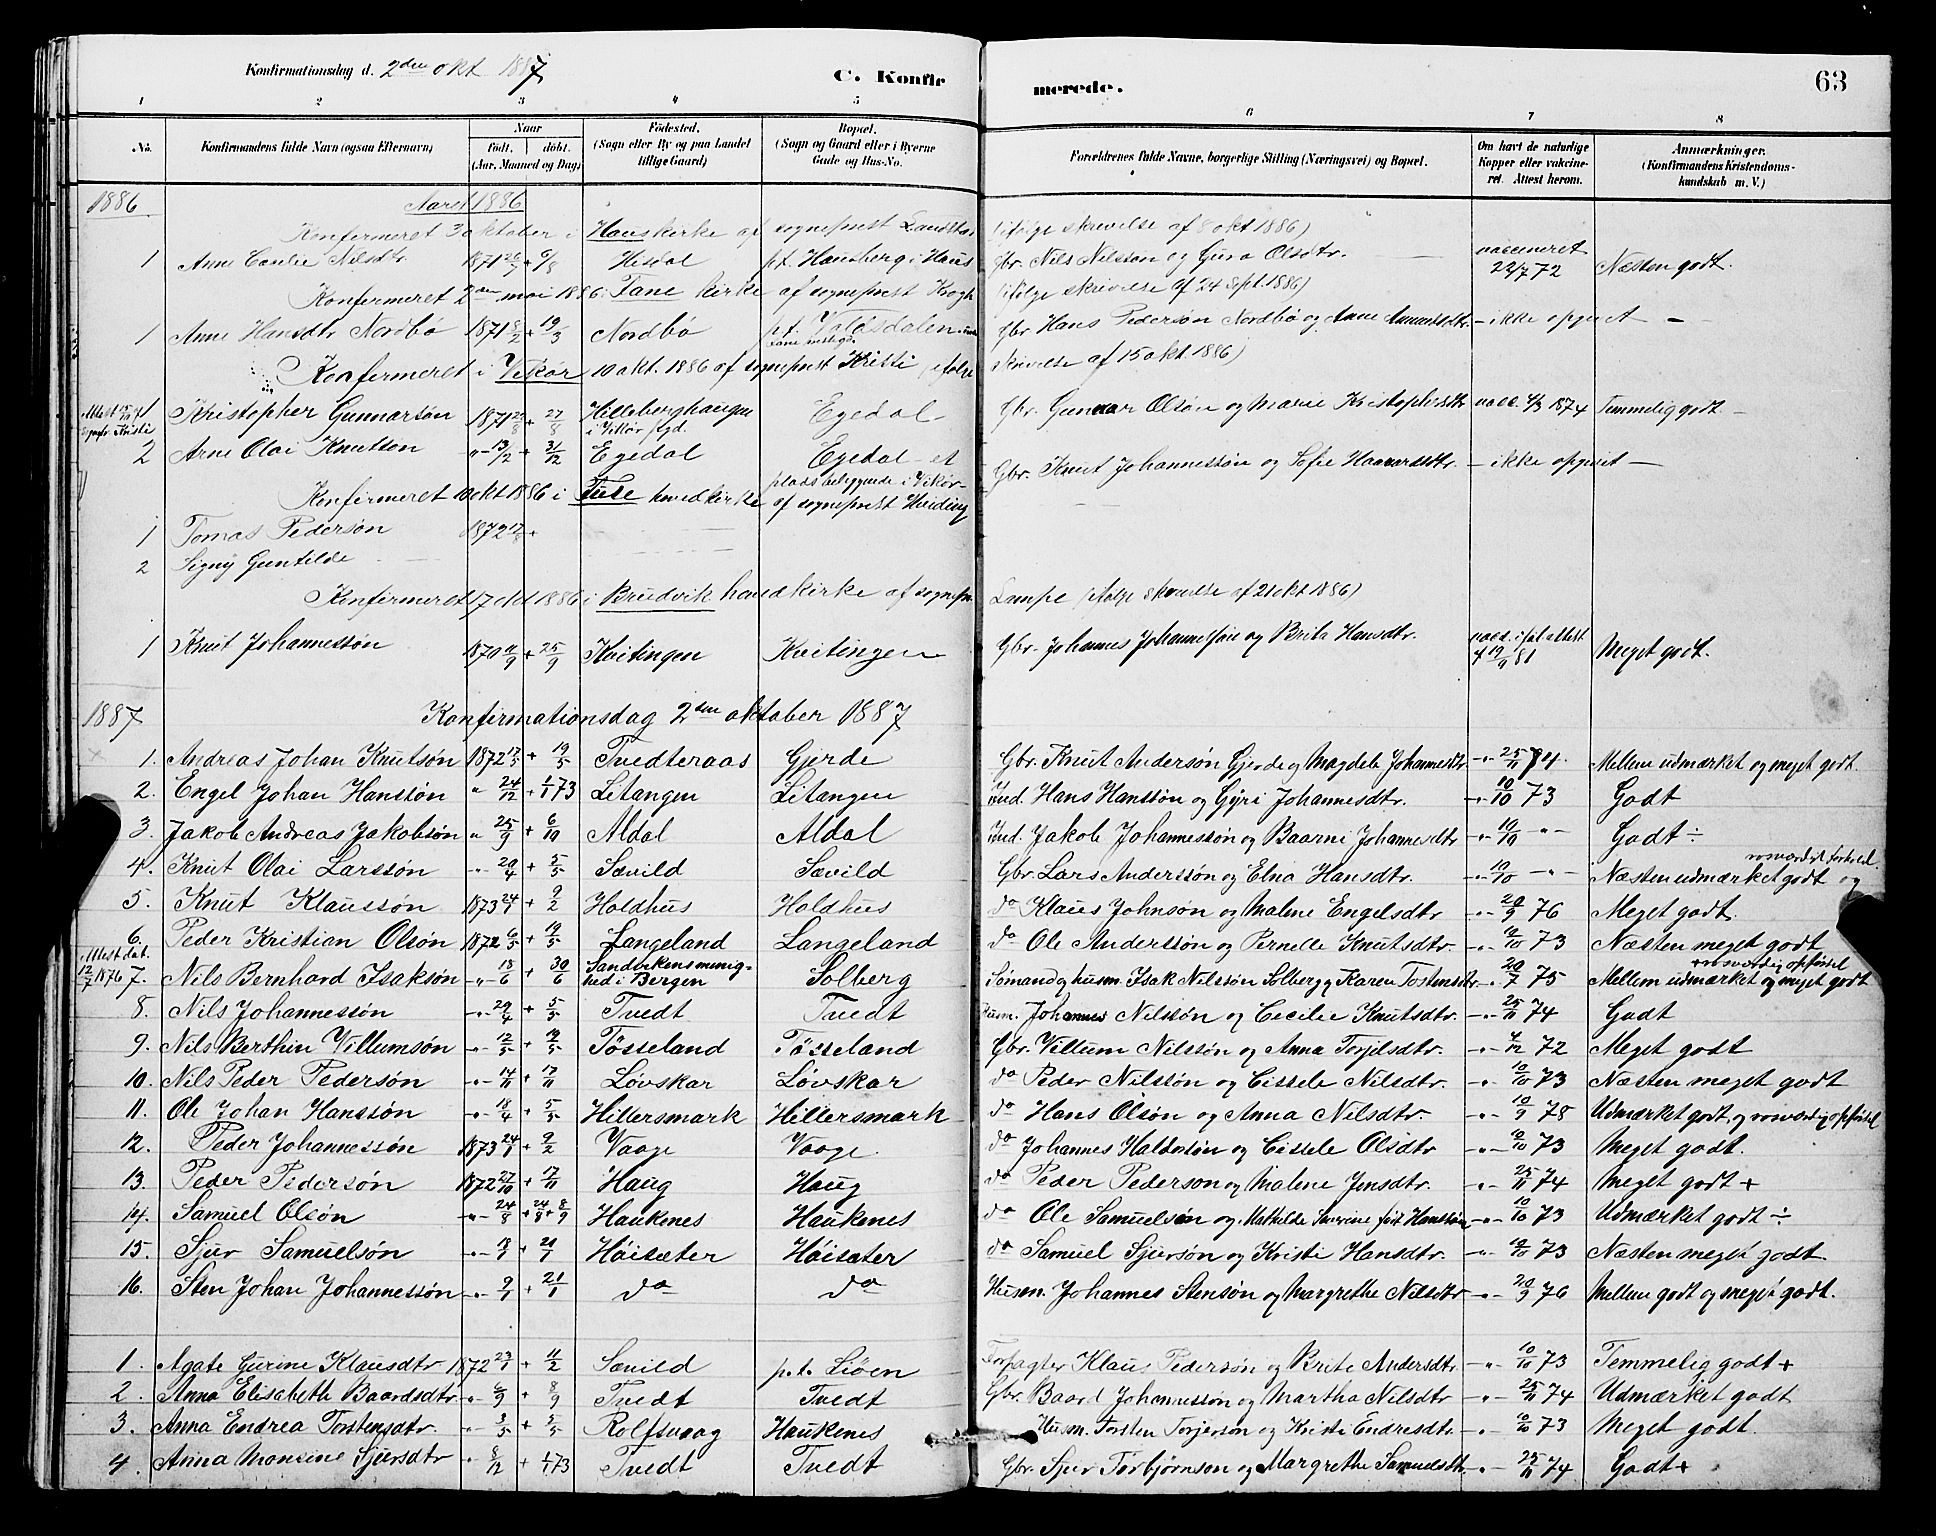 Konfirmationsdag d. 2den okt 1887 C. Konfirmerede. 63
1 2 3 4 5 6 7 8
No. Konfirmandens fulde Navn (ogsaa Efternavn) Naar født. døbt. (Aar, Maaned og Dag) Fødested. (Sogn eller By og paa Landet tillige Gaard) Bopæl. (Sogn og Gaard eller i Byerne Gade og Hus-No. Forældrenes fulde Navne, borgerlige Stilling (Næringsvei) og Bopæl. Om havt de naturlige Kopper eller vakcineret. Attest herom. Anmærkninger. (Konfirmandens Kristendomskundskab m. V.)
1886 Aaret 1886
Konfirmeret 3 oktober i Hauskirke af sogneprest (ifølge skrivelse af 8 okt 1886)
1 Anne Cecilie Nilsdtr 1871 6/8 Hisdal p.t. Hausberg i Haus Gbr. Nils Nilssøn og Guro Olsdtr. vaccineret 23/7 72 Næsten godt.
Konfirmeret 2den mai 1886 i Fane kirke af sogneprest Krogh (ifølge skrivelse af 24 sept. 1886)
1 Anne Hansdtr Nordbø 1871 8/2 + 19/3 Nordbø p.t. Gbr Hans Pedersøn Nordbø og Anne - ikke opgivet -
Konfirmeret i Vikør 10 okt. 1886 af sogneprest Kristi ifølge skrivelse af 15 okt 1886)
1 Kristopher Gunnarsøn 1871 + 27/8 Hilleberghaugen i Vikør Egedal Gbr. Gunnar Olsøn og Marie Kristophersdtr vacc. 4/3 1874 Temmelig godt -
2 Arne Olai Knutsøn " - 13/2 + 31/12 Egedal Egedal et plads beliggende i Vikør Gbr. Knut Johannessøn og Sofie Haavarsdtr. - ikke opgivet -
Konfirmeret 10 okt 1886 i Fuse hovedkirke af sogneprest Heiding
1 Tomas Pedersøn 1872 17/8 +
2 Signy Guntilde
Konfirmeret 17 okt 1886 i Bruvik hovedkirke af sognepr. Lampe (ifølge skrivelse af 21 okt 1886)
1 Knut Johannessøn 1870 11/9 + 25/9 Kvitingen Kvitingen Gbr. Johannes Johannessøn og Brita Hansdtr. vacc. iføl. attest af 19/9 81 Meget godt.
1887 Konfirmationsdag 2den oktober 1887
1. Andreas Johan Knutsøn 1872 17/5 + 19/5 Tvedteraas Gjerde Gbr. Knut Andersøn Gjerde og Magdela Johannesdtr -"- 25/11 74. Mellem udmærket og meget godt.
2. Engel Johan Hanssøn " 24/12 + 1/1 73 Litangen Litangen Ind. Hans Hanssøn og Gyri Johannesdtr. -"- 10/10 73 Godt
3. Jakob Andreas Jakobsøn " 25/9 + 6/10 Aldal Aldal Ind. Jakob Johannessøn og Baarni Johannesdtr 10/10 -"- Godt ÷
4. Knut Olai Larssøn -"- 20/4 + 5/5 Sævild Sævild Gbr. Lars Anderssøn og Elna Hansdtr. -"- 10/10 -"- Næsten udmærket godt og rosværdigt forhold.
5. Knut Klaussøn 1873 24/1 + 2/2 Holdhus Holdhus do Klaus Johnsøn og Malene Engelsdtr -"- 20/9 76 Meget godt.
6. Peder Kristian Olsøn 1872 6/5 + 12/5 Langeland Langeland do Ole Anderssøn og Pernelle Knutsdtr. -"- 10/10 73 Næsten meget godt
Attest dat. 12/7 1876 7. Nils Bernhard Isaksøn -"- 18/6 + 30/6 Sandvikens menighed i Bergen Solberg Sømand og husm. Isak Nilssøn Solberg og Karen Tostensdtr -"- 20/7 75 Mellem udmærket og meget godt + rosværdig opførsel
8. Nils Johannessøn -"- 29/4 + 5/5 Tvedt Tvedt Husm. Johannes Nilssøn og Cecilie Knutsdtr. -"- 25/11 74 Godt
9. Nils Berthin Villumsøn -"- 12/5 + 19/5 Tøsseland Tøsseland Gbr. Villum Nilssøn og Anna Torjilsdtr. -"- 4/12 72 Meget godt
10. Nils Peder Pedersøn -"- 14/11 + 17/11 Løvskar Løvskar do Peder Nilssøn og Cissele Nilsdtr. -"- 10/10 73 Næsten meget godt
11. Ole Johan Hanssøn -"- 18/4 + 5/5 Hillersmark Hillersmark do Hans Olsøn og Anna Nilsdtr. -"- 10/9 78 Udmærket godt og rosværdig opførsel
12. Peder Johannessøn 1873 24/1 + 2/2 Vaage Vaage do Johannes Haldorsøn og Cissele Olsdtr -"- 10/10 73 Meget godt.
13. Peder Pedersøn 1872 27/10 + 17/11 Haug Haug do Peder Pedersøn og Malene Jensdtr. -"- 25/11 74 Meget godt +
14. Samuel Olsøn -"- 24/8 + 24/8 + 8/9 Haukenes Haukenes do Ole Samuelsøn og Mathilde Severine født Hanssøn -"- 10/10 73 Udmærket godt ÷
15. Sjur Samuelsøn -"- 18/1 + 21/1 Høisæter Høisæter do Samuel Sjursøn og Kristi Hansdtr. -"- 10/10 73 Næsten meget godt
16. Sten Johan Johannessøn -"- 9/1 + 21/1 do do Husm. Johannes Stensøn og Margrethe Nilsdtr -"- 20/9 76 Mellem godt og meget godt.
1. Agate Gurine Klausdtr 1872 23/1 + 11/2 Sævild p.t. Siøen Forpagter Klaus Pedersøn og Brite Andersdtr. -"- 10/10 73 Temmelig godt +
2. Anna Elisabeth Baardsdtr -"- 6/9 + 8/9 Tvedt Tvedt Gbr. Baard Johannessøn og Martha Nilsdtr -"- 25/11 74 Udmærket godt
3. Anna Endrea Torstensdtr. -"- 3/5 + 5/5 Rolfsvaag Haukenes Husm. Torsten Torjersøn og Kristi Endresdtr. -"- 10/10 73 Meget godt.
4. Anna Monsine Sjursdtr -"- 8/12 + 1/1 73 Tvedt Tvedt Gbr. Sjur Torbjørnsøn og Margrethe Samuelsdtr. -"- 25/11 74 Godt +